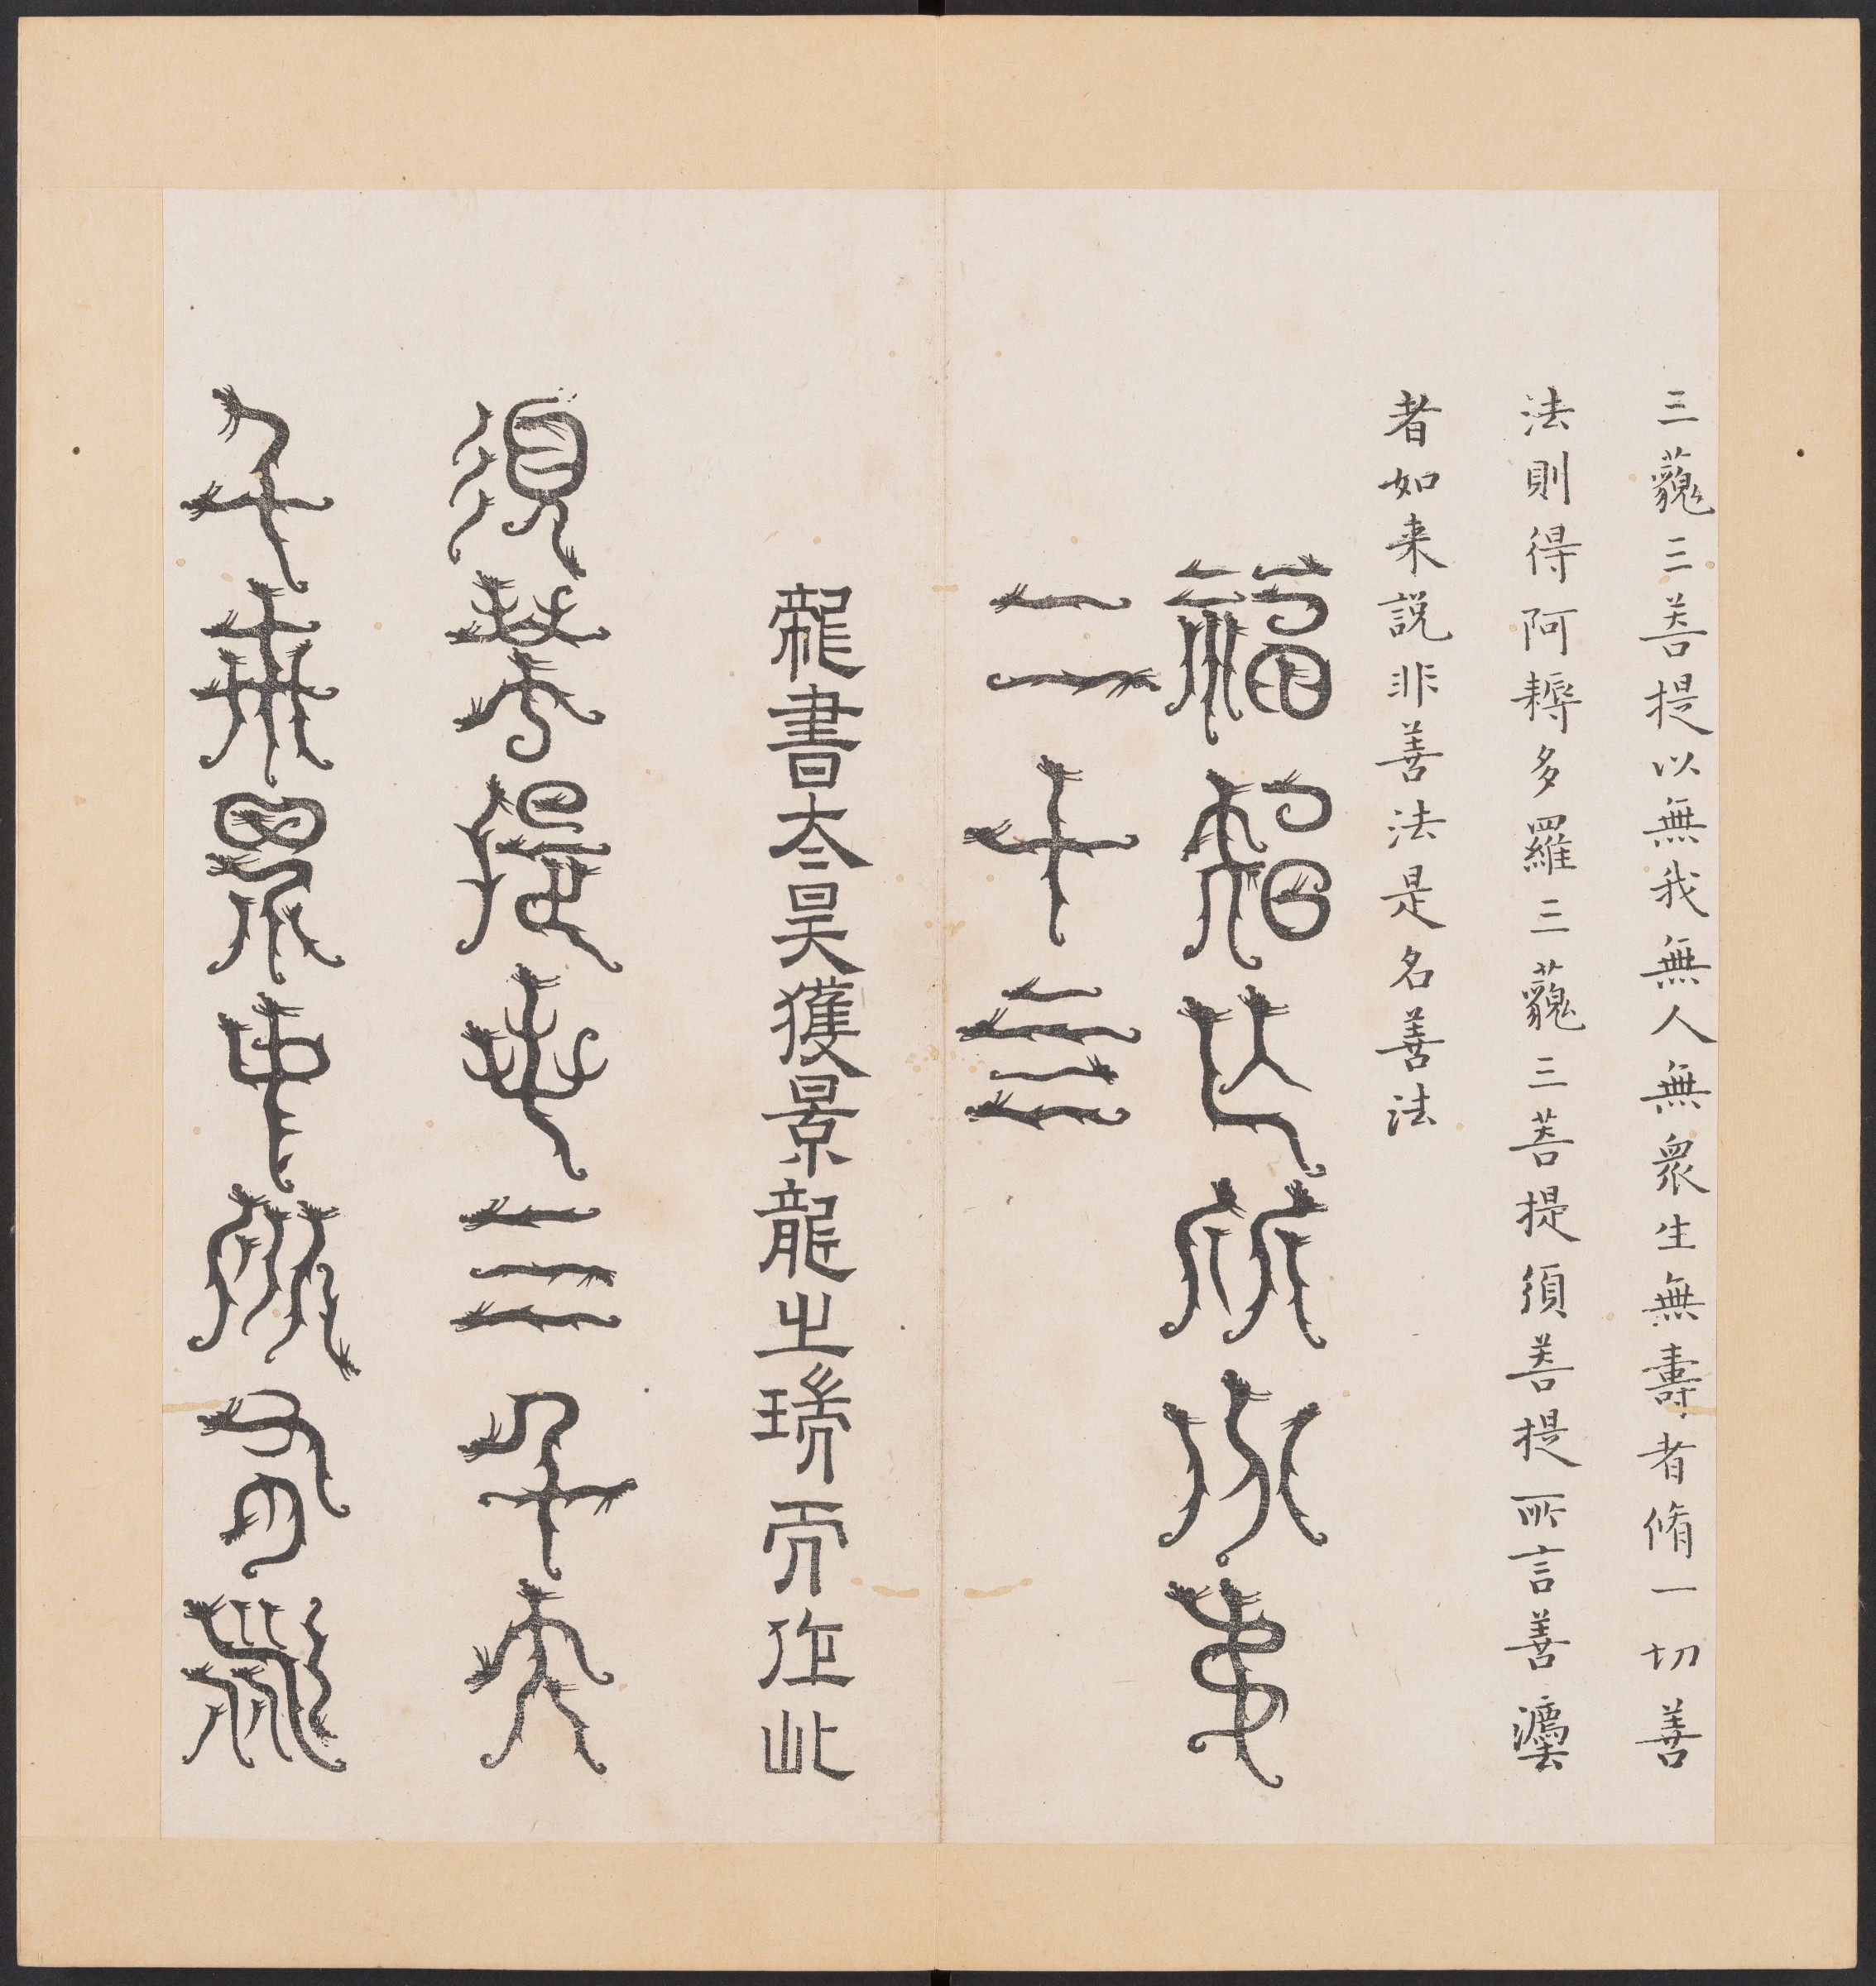 三藐三菩提以無我無人無眾生無壽者脩一切善
法則得阿耨多羅三藐三菩提須菩提所言善灋
者如来說非善法是名善法
福智無比分第
二十四
龍書太昊獲景龍之瑞而作此
須菩提若三千大
千世界中所有諸